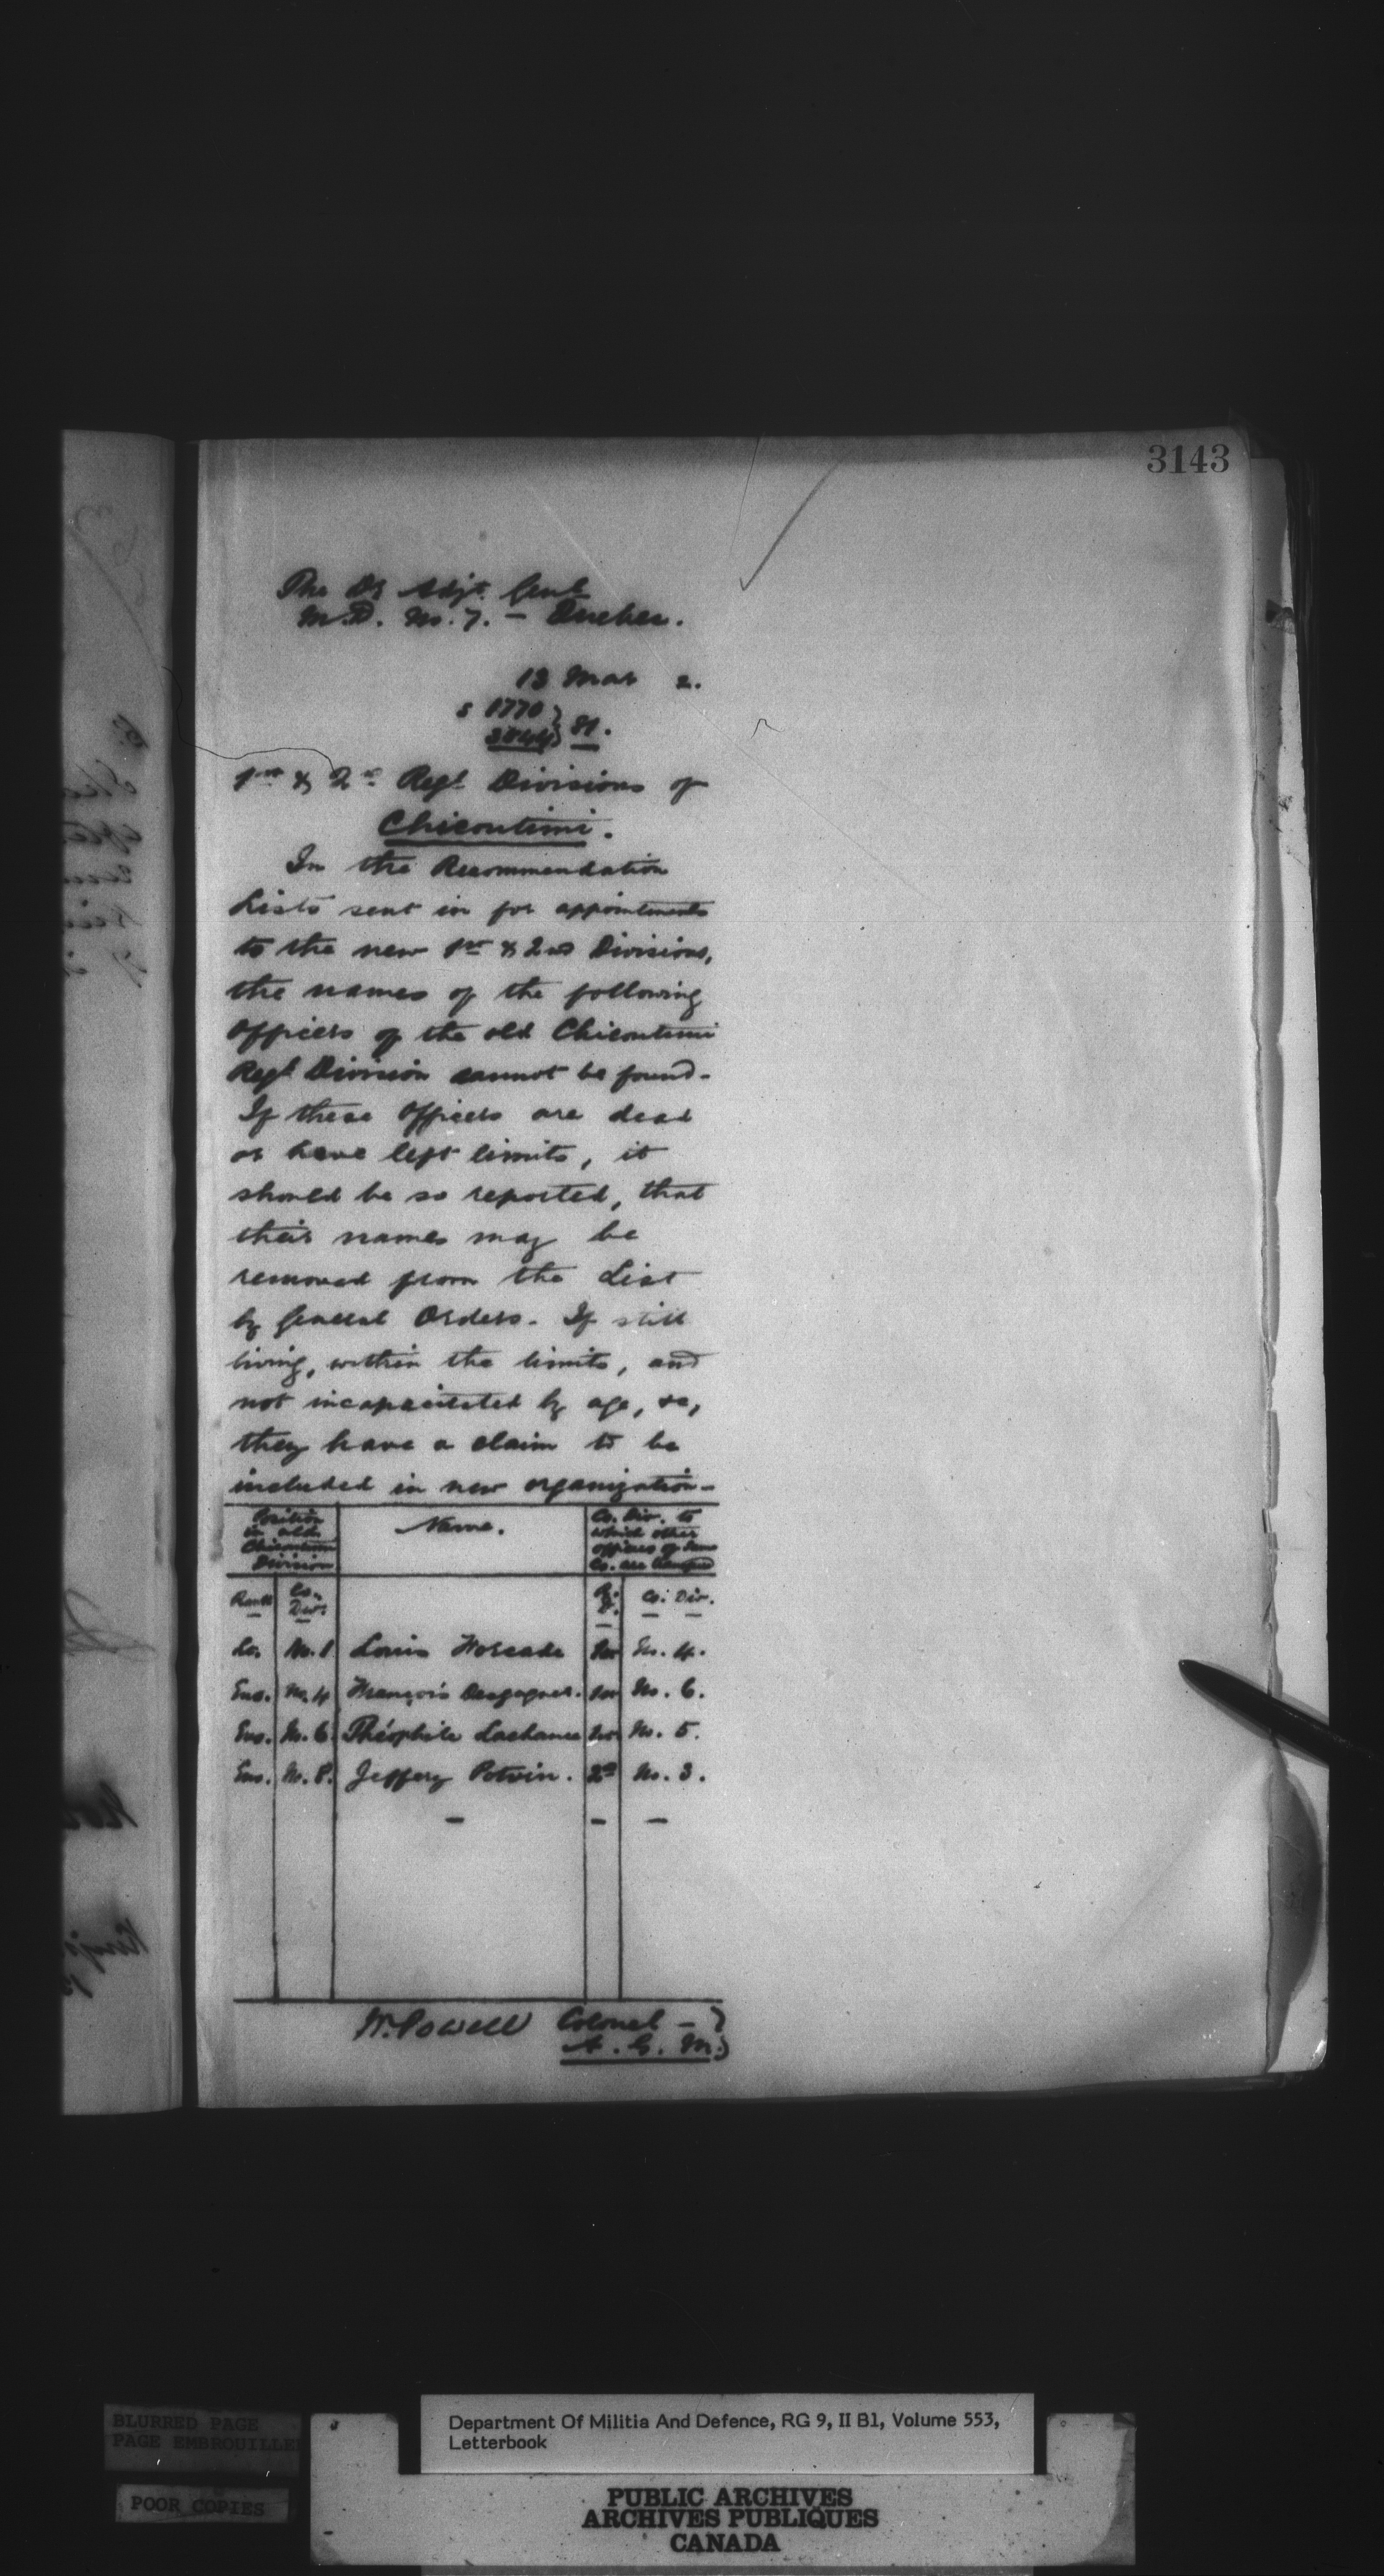 3143
The Dy Adjt. Genl
M.D. No. 7. – Quebec.
13 Mar 2.
1770 } 81.
3844 }
1st & 2d Regl Divisions of
Chicoutimi.
In the Recommendation
Lists sent in for appointments
to the new 1st & 2nd Divisions,
the names of the following
Officers of the old Chicoutimi
Regl Division cannot be found –
If these Officers are dead
or have left limits, it
should be so reported, that
their names may be
removed from the List
by General Orders – If still
living, within the limits, and
not incapacitated by age, &c,
they have a claim to be
included in new organization –
Position in old Chicoutimi Division | Name. | Co. Div. to which other officers of same Co. are
Rank | Co. Div. | R. D. | Co. Div.
No. 1 Louis 1st No. 4.
Ens. No. 4 François Desgagnés. 1st No. 6.
Ens. No. 6 Théophile Lachance No. 5.
Ens. No. 8. Jeffery Potvin. 2d No. 3.
– – –
W. Powell Colonel – }
A. G. M. }
BLURRED PAGE
PAGE EMBROUILLEE
POOR COPIES
Department Of Militia And Defence, RG 9, II B1, Volume 553,
Letterbook
PUBLIC ARCHIVES
ARCHIVES PUBLIQUES
CANADA